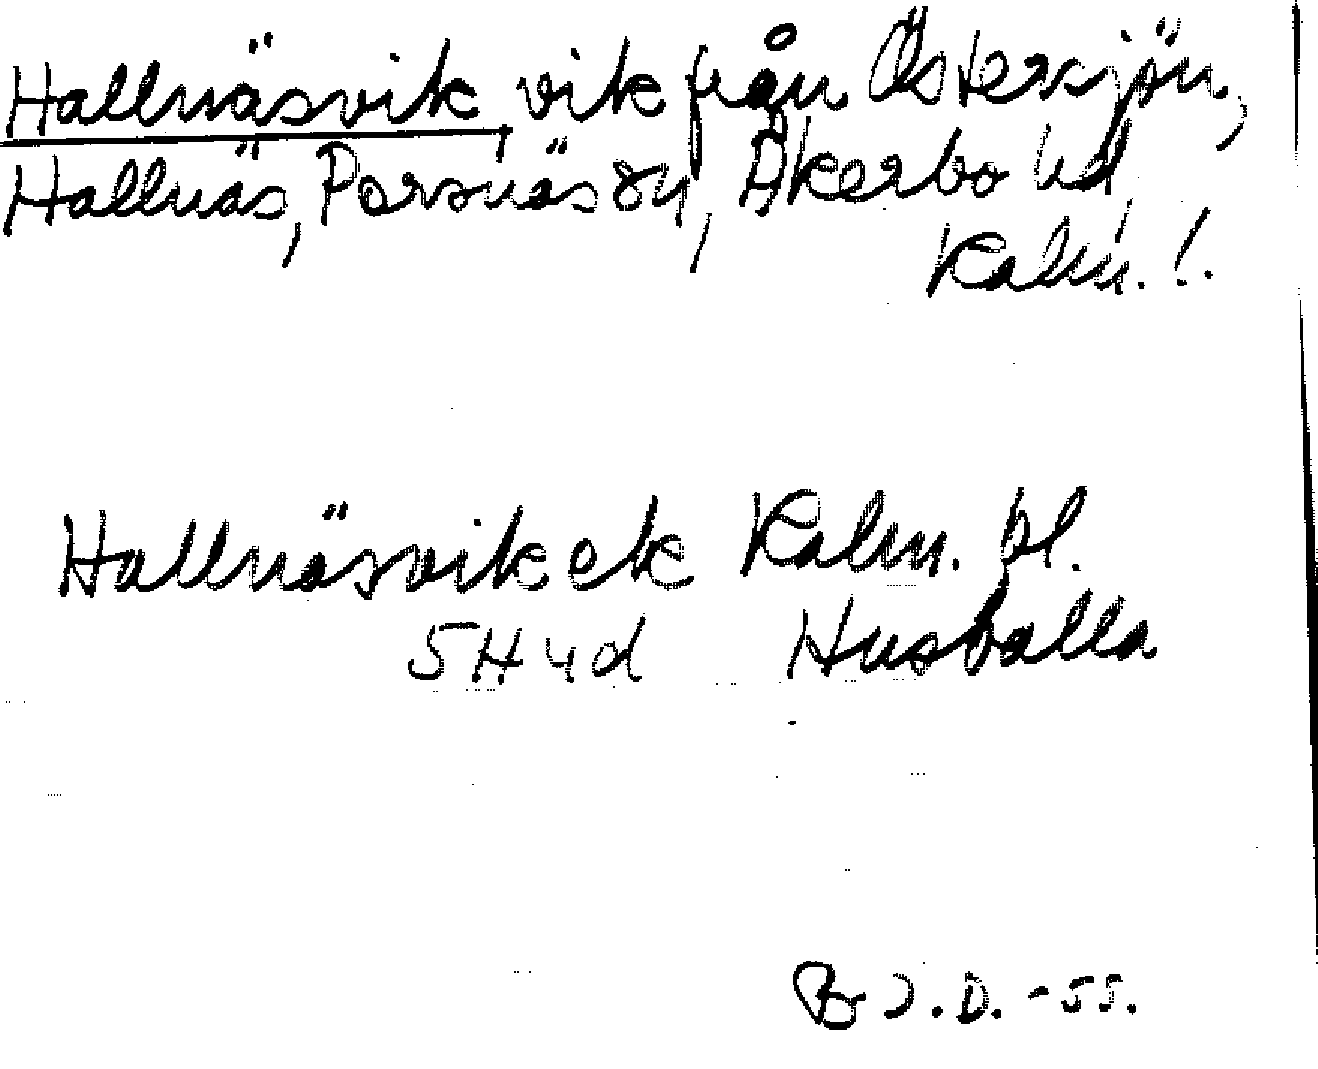 Hallnäsvik, vik från Östersjön,
Hallnäs, Persnäs sn, Åkerbo hd,
Kalm. l.
Hallnäsvik ek Kalm. bl.
5H4d Husvalla
B J.D. -55.